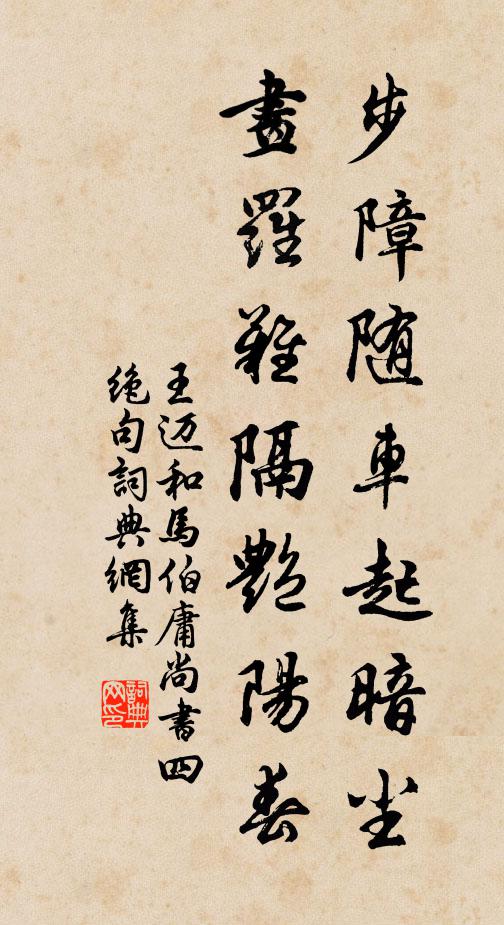 步障随車起暗尘
畫羅難隔艷陽春
王迈和馬伯庸尚書四
绝句詞典網集
詞典网印